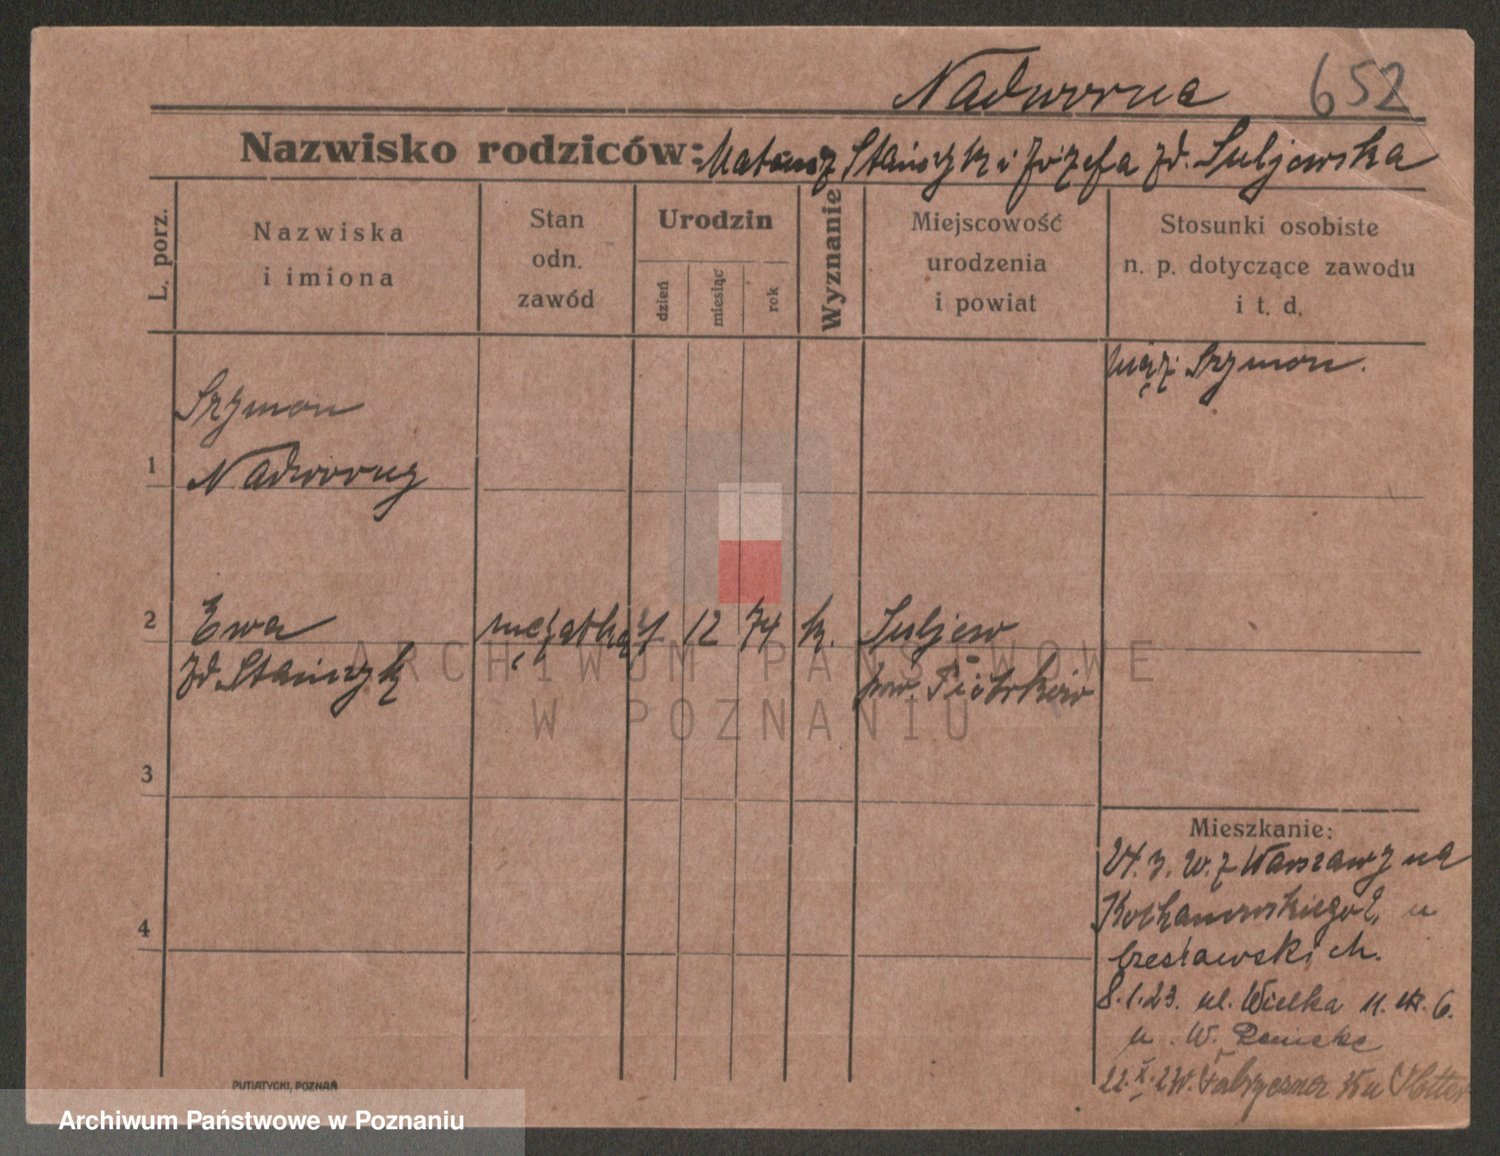 Nadworna 652
Nazwisko rodziców: Mateusz Stańczyk i Józefa zd. Suljewska
L. porz.
Nazwiska
i imiona
Stan
odn.
zawód
Urodzin
dzień
miesiąc
rok
Wyznanie
Miejscowość
urodzenia
i powiat
Stosunki osobiste
n. p. dotyczące zawodu
i t. d.
mąż Szymon.
Szymon
1 Nadworny
2 Ewa mężatka 12 74 k. Suljew
zd. Stańczyk pow. Piotrków
3
4
Mieszkanie:
z Warszawy na
Kochanowskiego
Czesławskich.
8.1.23. ul. Wielka 11. 6.
u W.
ARCHIWUM PAŃSTWOWE
W POZNANIU
PUTIATYCKI, POZNAŃ
Archiwum Państwowe w Poznaniu